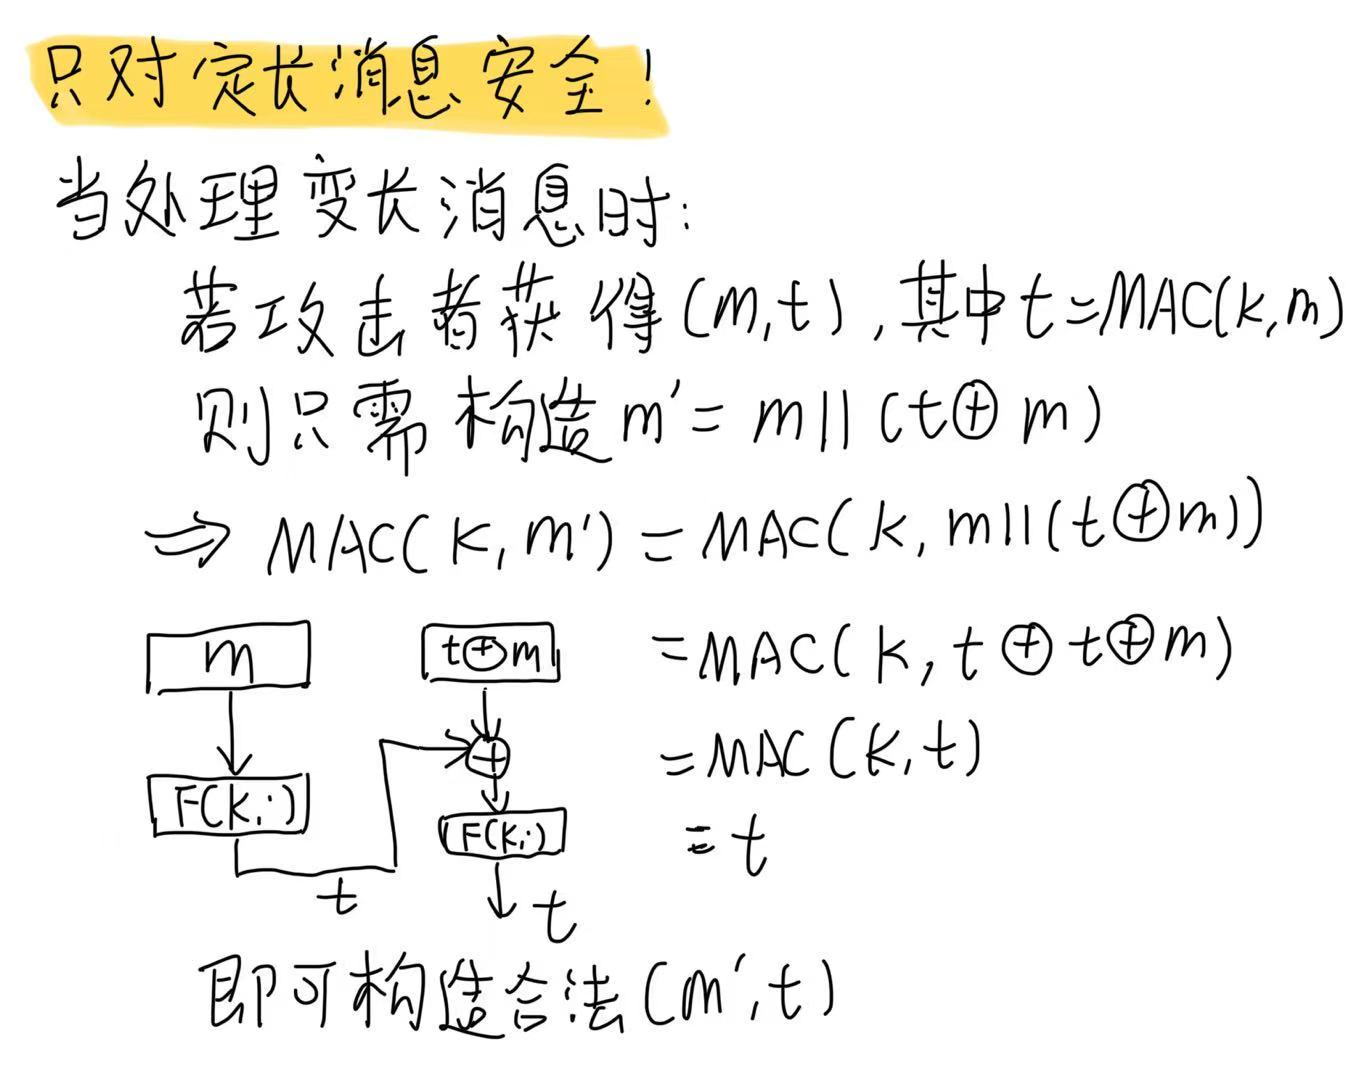 只对定长消息安全！
当处理变长消息时：
若攻击者获得(m,t),其中t=MAC(k,m)
则只需构造m'=m||(t⊕m)
⇒MAC(k,m')=MAC(k,m||(t⊕m))
=MAC(k,t⊕t⊕m)
=MAC(k,t)
=t
m
t⊕m
+
F(k,·)
F(k,·)
t
t
即可构造合法(m',t)